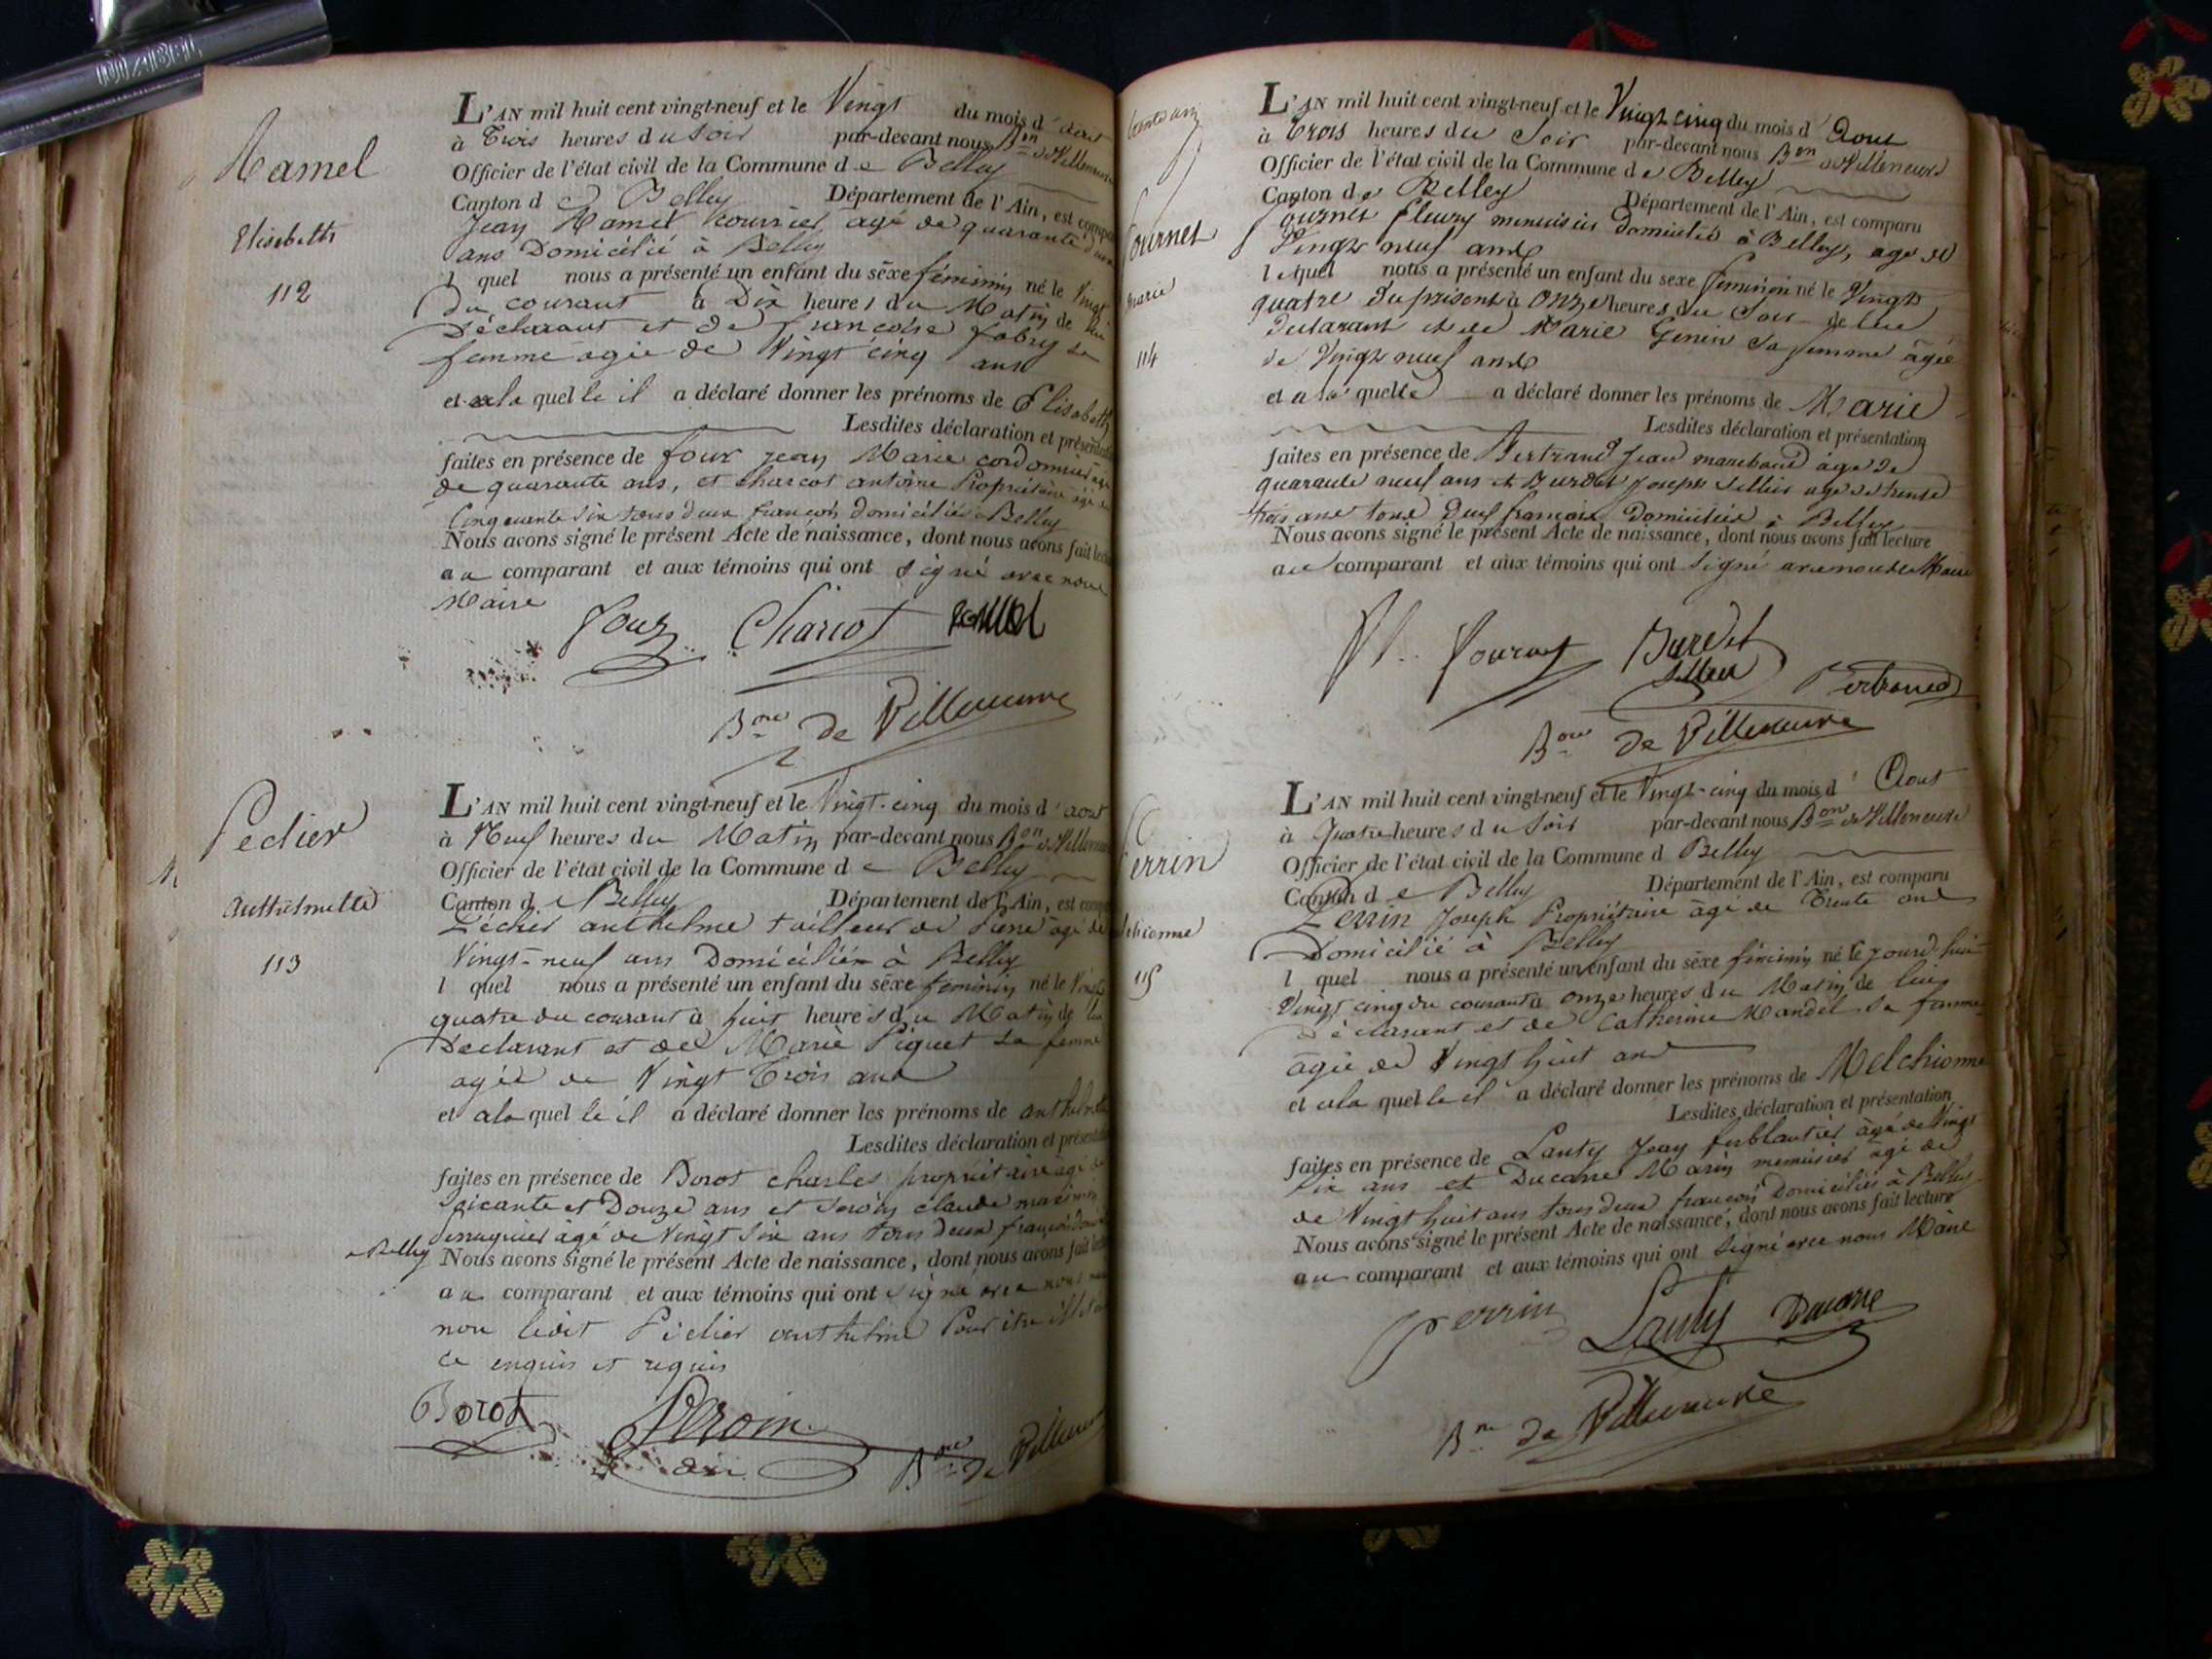 MABEL
Hamel
Elisabeth
112
L'AN mil huit cent vingt-neuf et le Vingt du mois d'aout
à Trois heures du soir par-devant nous Bon de Villeneuve
Officier de l'état civil de la Commune de Belley
Canton de Belley Département de l'Ain, est comparu
Jean Hamel courrier agé de quarante
ans Domicilié à Belley
l quel nous a présenté un enfant du sexe féminin né le Vingt
Du courant à Dix heures du Matin de lui
Déclarant et de françoise fabry sa
femme agée de Vingt cinq ans
et a la quelle il a déclaré donner les prénoms de Elisabeth
Lesdites déclaration et présentation
faites en présence de four jean Marie cordonnier agé
de quarante ans, et charcot antoine Propriétaire agé de
Cinquante six tous deux françois domiciliés à Belley
Nous avons signé le présent Acte de naissance, dont nous avons fait lecture
au comparant et aux témoins qui ont signé avec nous
Maire
Four Charcot hamel
Bon de Villeneuve
Pechier
Anthelmette
113
L'AN mil huit cent vingt-neuf et le Vingt-cinq du mois d'aout
à Neuf heures du Matin par-devant nous Bon de Villeneuve
Officier de l'état civil de la Commune de Belley
Canton de Belley Département de l'Ain, est comparu
Péchier anthelme tailleur de Pierre agé de
Vingt-neuf ans Domicilié à Belley
l quel nous a présenté un enfant du sexe féminin né le Vingt
quatre du courant à huit heures du Matin de lui
Déclarant et de Marie Piquet sa femme
agée de Vingt Trois ans
et a la quelle il a déclaré donner les prénoms de anthelmette
Lesdites déclaration et présentation
faites en présence de Borot charles propriétaire agé de
Soicante et Douze ans et Seroin claude
perruquier agé de Vingt Six ans tous deux françois
a Belley Nous avons signé le présent Acte de naissance, dont nous avons fait lecture
au comparant et aux témoins qui ont signé avec nous
non ledit Péchier anthelme Pour être
de enquis et requis
Borot Seroin
Bon de Villeneuve
Fournet
Marie
114
L'AN mil huit cent vingt-neuf et le Vingt cinq du mois d'Aout
à Trois heures du Soir par-devant nous Bon de Villeneuve
Officier de l'état civil de la Commune de Belley
Canton de Belley Département de l'Ain, est comparu
Fournet fleury menuisier domicilié à Belley, agé de
Vingt neuf ans
lequel nous a présenté un enfant du sexe feminin né le Vingt
quatre du présent à Onze heures du Soir de lui
declarant et de Marie Genin sa femme âgée
de Vingt neuf ans
et a la quelle a déclaré donner les prénoms de Marie
Lesdites déclaration et présentation
faites en présence de Bertrand Jean marchand âgé de
quarante neuf ans et Burdet Joseph Sellier agé de trente
trois ans tous deux françois domiciliés à Belley
Nous avons signé le présent Acte de naissance, dont nous avons fait lecture
au comparant et aux témoins qui ont signé avec nous Maire
fl. Fournet Burdet
Sellier Bertrand
Bon de Villeneuve
Perrin
Melchionne
115
L'AN mil huit cent vingt-neuf et le Vingt-cinq du mois d'Aout
à Quatre heures du Soir par-devant nous Bon de Villeneuve
Officier de l'état civil de la Commune d Belley
Canton de Belley Département de l'Ain, est comparu
Perrin Joseph Propriétaire âgé de Trente ans
Domicilié à Belley
l quel nous a présenté un enfant du sexe féminin né le jourd'hui
Vingt cinq du courant à onze heures du Matin de lui
déclarant et de Catherine Mandel sa femme
âgée de Vingt huit ans
et a la quelle il a déclaré donner les prénoms de Melchionne
Lesdites déclaration et présentation
faites en présence de Lanty Jean ferblantier âgé de Vingt
six ans et Ducarre Marin menuisier âgé de
de Vingt huit ans tous deux françois Domiciliés à Belley
Nous avons signé le présent Acte de naissance, dont nous avons fait lecture
au comparant et aux témoins qui ont signé avec nous Maire
Perrin Lanty Ducarre
Bon de Villeneuve